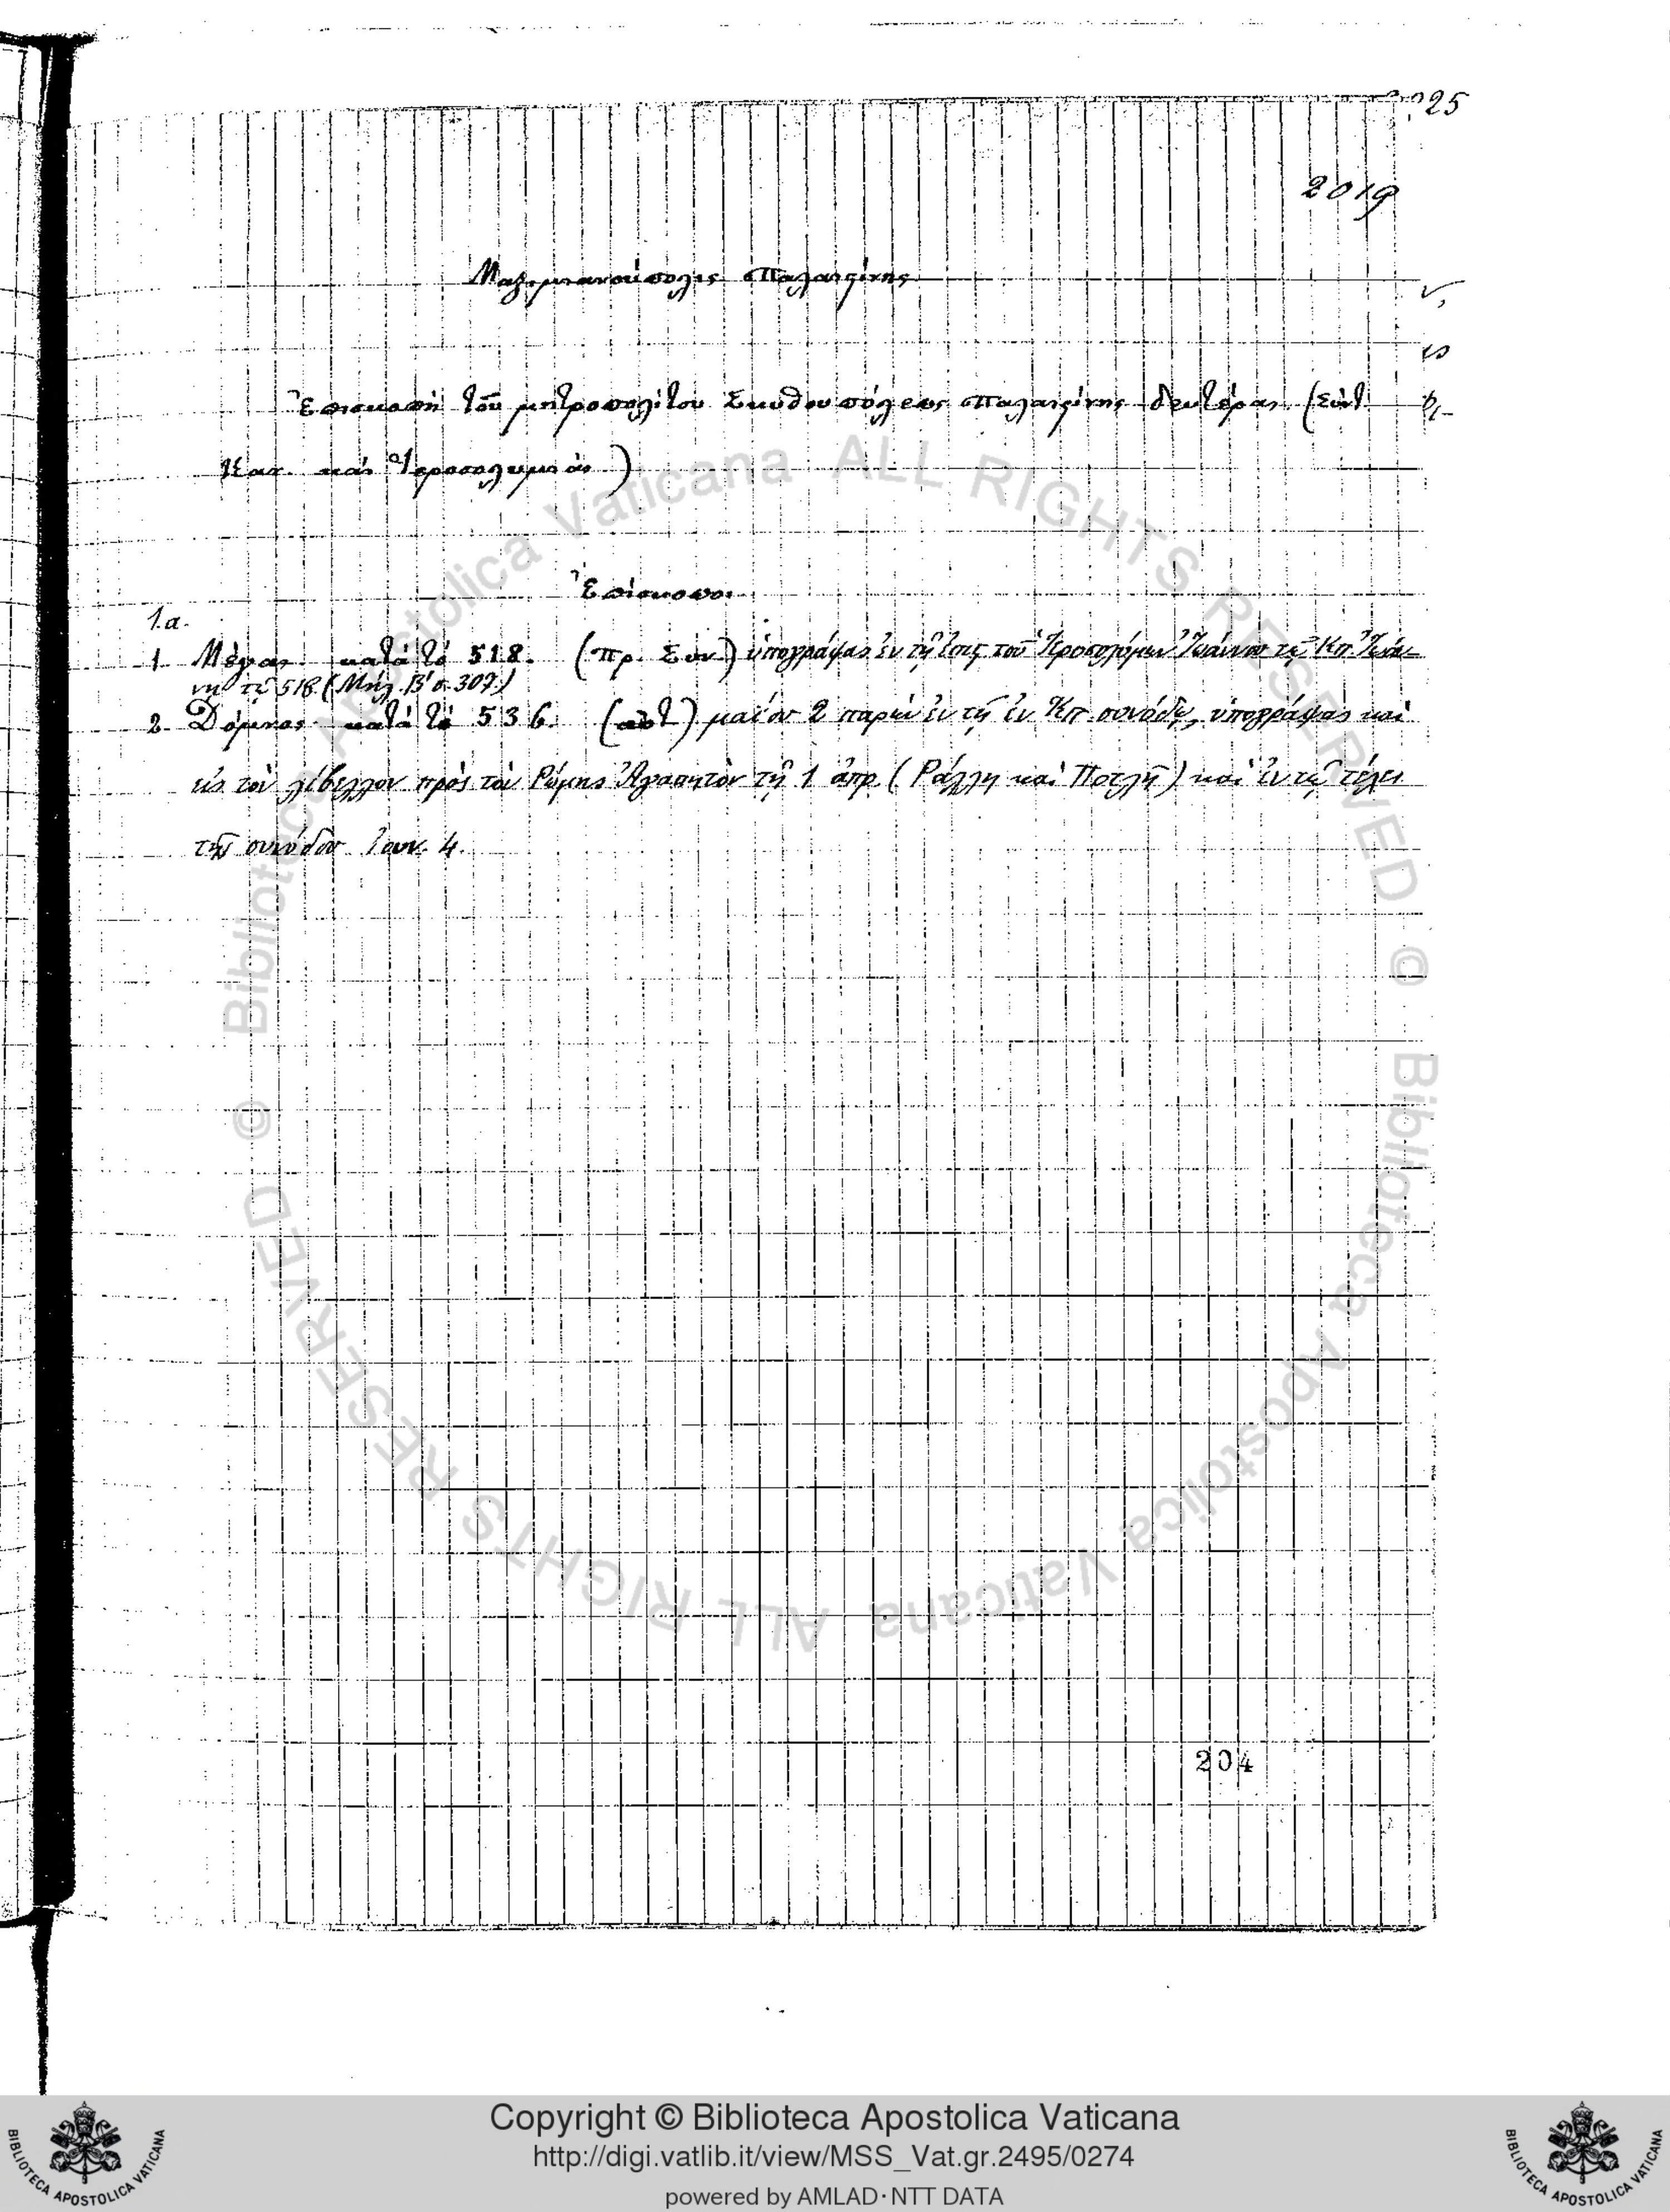 25
2019
Μαξιμιανούπολις Παλαιστίνης
Ἐπισκοπὴ τοῦ μητροπολίτου Σκυθουπόλεως Παλαιστίνης δευτέρας (Σύντ.
Κατ. καὶ Ἱεροσολυμιάς)
Ἐπίσκοποι
1.α.
1 Μέγας κατὰ τὸ 518. (πρ. Συν) ὑπογράψας ἐν τῇ ἐπις τοῦ Ἱεροσολύμων Ἰωάννου τῷ Κπ. Ἰωάν-
νῃ τῷ 518 (Μηλ. Β' σ. 307)
2 Δόμνος κατὰ τὸ 536. μαΐου 2 παρὼν ἐν τῇ ἐν Κπ. συνόδῳ, ὑπογράψας καὶ
εἰς τὸν λίβελλον πρὸς τὸν Ῥώμης Ἀγαπητὸν τῇ 1 ἀπρ. (Ράλλη καὶ Ποτλῆ) καὶ ἐν τῷ τέλει
τῆς συνόδου Ἰουν. 4.
204
© Biblioteca Apostolica Vaticana ALL RIGHTS RESERVED
© Biblioteca Apostolica Vaticana ALL RIGHTS RESERVED
Copyright © Biblioteca Apostolica Vaticana
http://digi.vatlib.it/view/MSS_Vat.gr.2495/0274
powered by AMLAD·NTT DATA
BIBLIOTECA APOSTOLICA VATICANA
BIBLIOTECA APOSTOLICA VATICANA